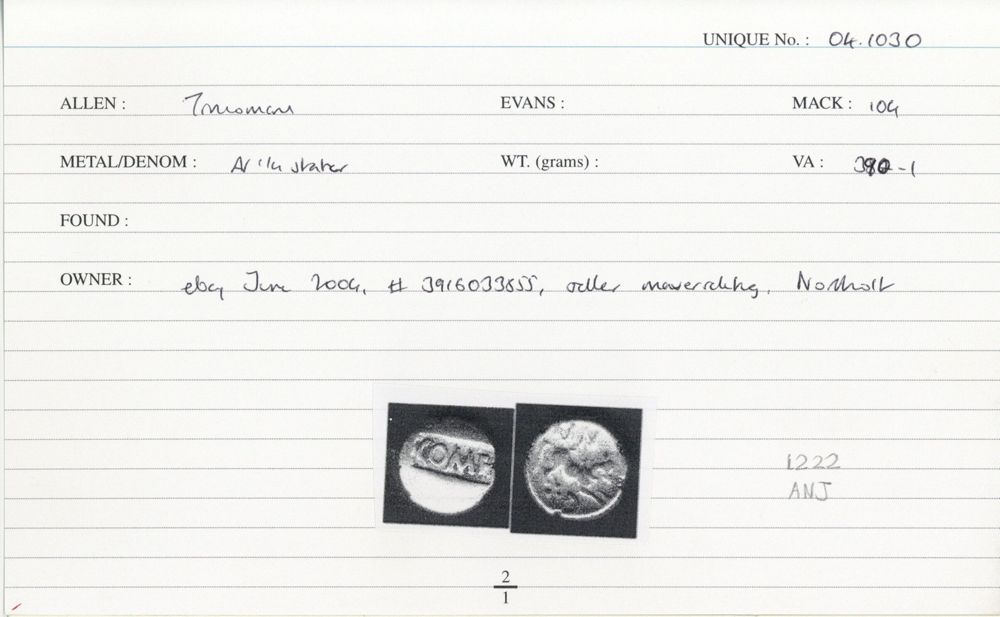 UNIQUE No. : 04.1030
ALLEN : Trinovan EVANS : MACK : 104
METAL/DENOM : AV 1/4 stater WT. (grams) : VA : 390-1
FOUND :
OWNER : ebay June 2004, # 3916033855, seller Northolt
COMF
VIR
1222
ANJ
2
1